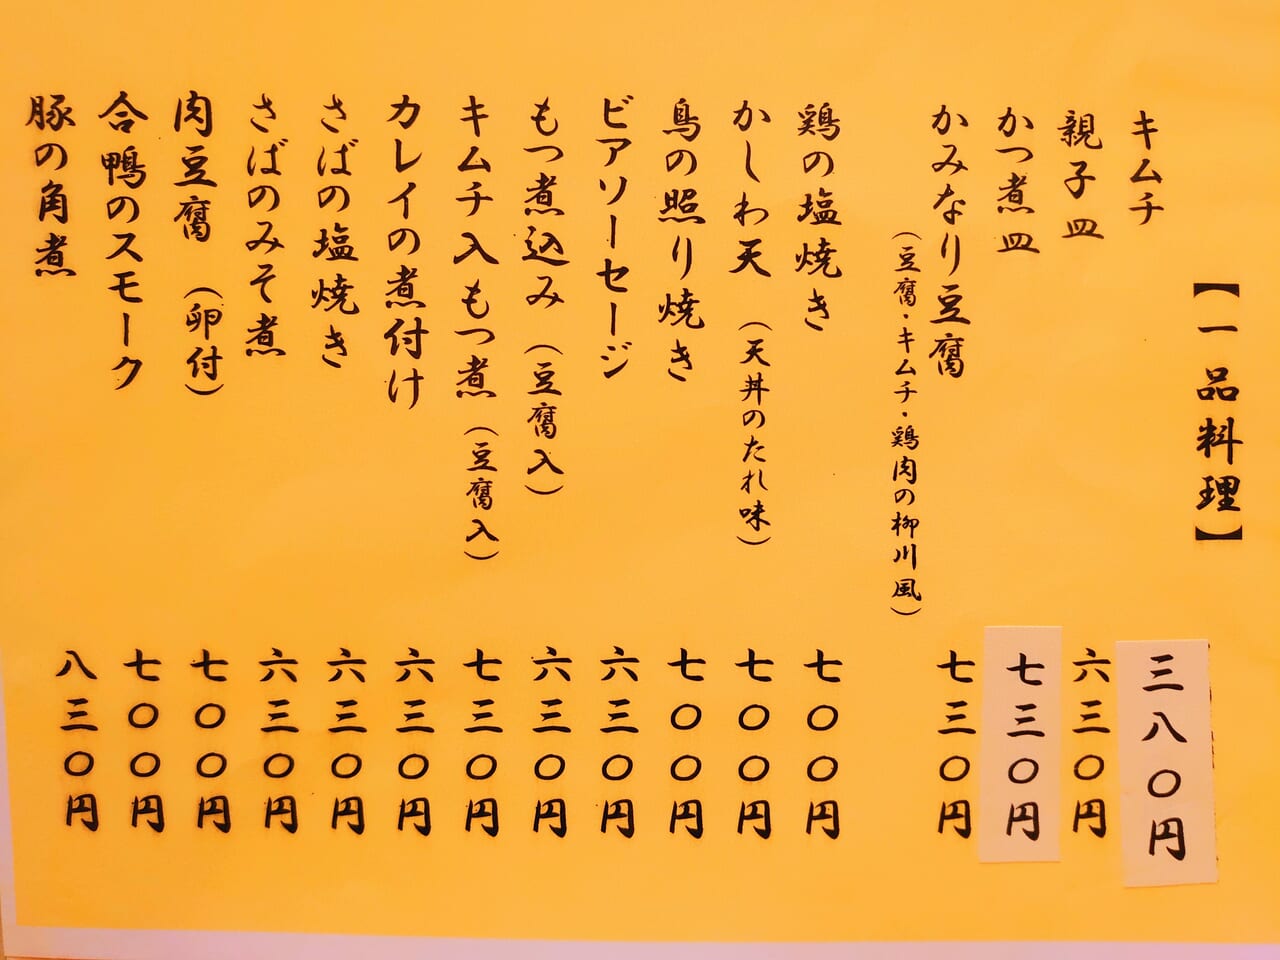 【一品料理】
キムチ 三八〇円
親子皿 六三〇円
かつ煮皿 七三〇円
かみなり豆腐 七三〇円
（豆腐・キムチ・鶏肉の柳川風）
鶏の塩焼き 七〇〇円
かしわ天（天丼のたれ味） 七〇〇円
鳥の照り焼き 七〇〇円
ビアソーセージ 六三〇円
もつ煮込み（豆腐入） 六三〇円
キムチ入もつ煮（豆腐入） 七三〇円
カレイの煮付け 六三〇円
さばの塩焼き 六三〇円
さばのみそ煮 六三〇円
肉豆腐（卵付） 七〇〇円
合鴨のスモーク 七〇〇円
豚の角煮 八三〇円